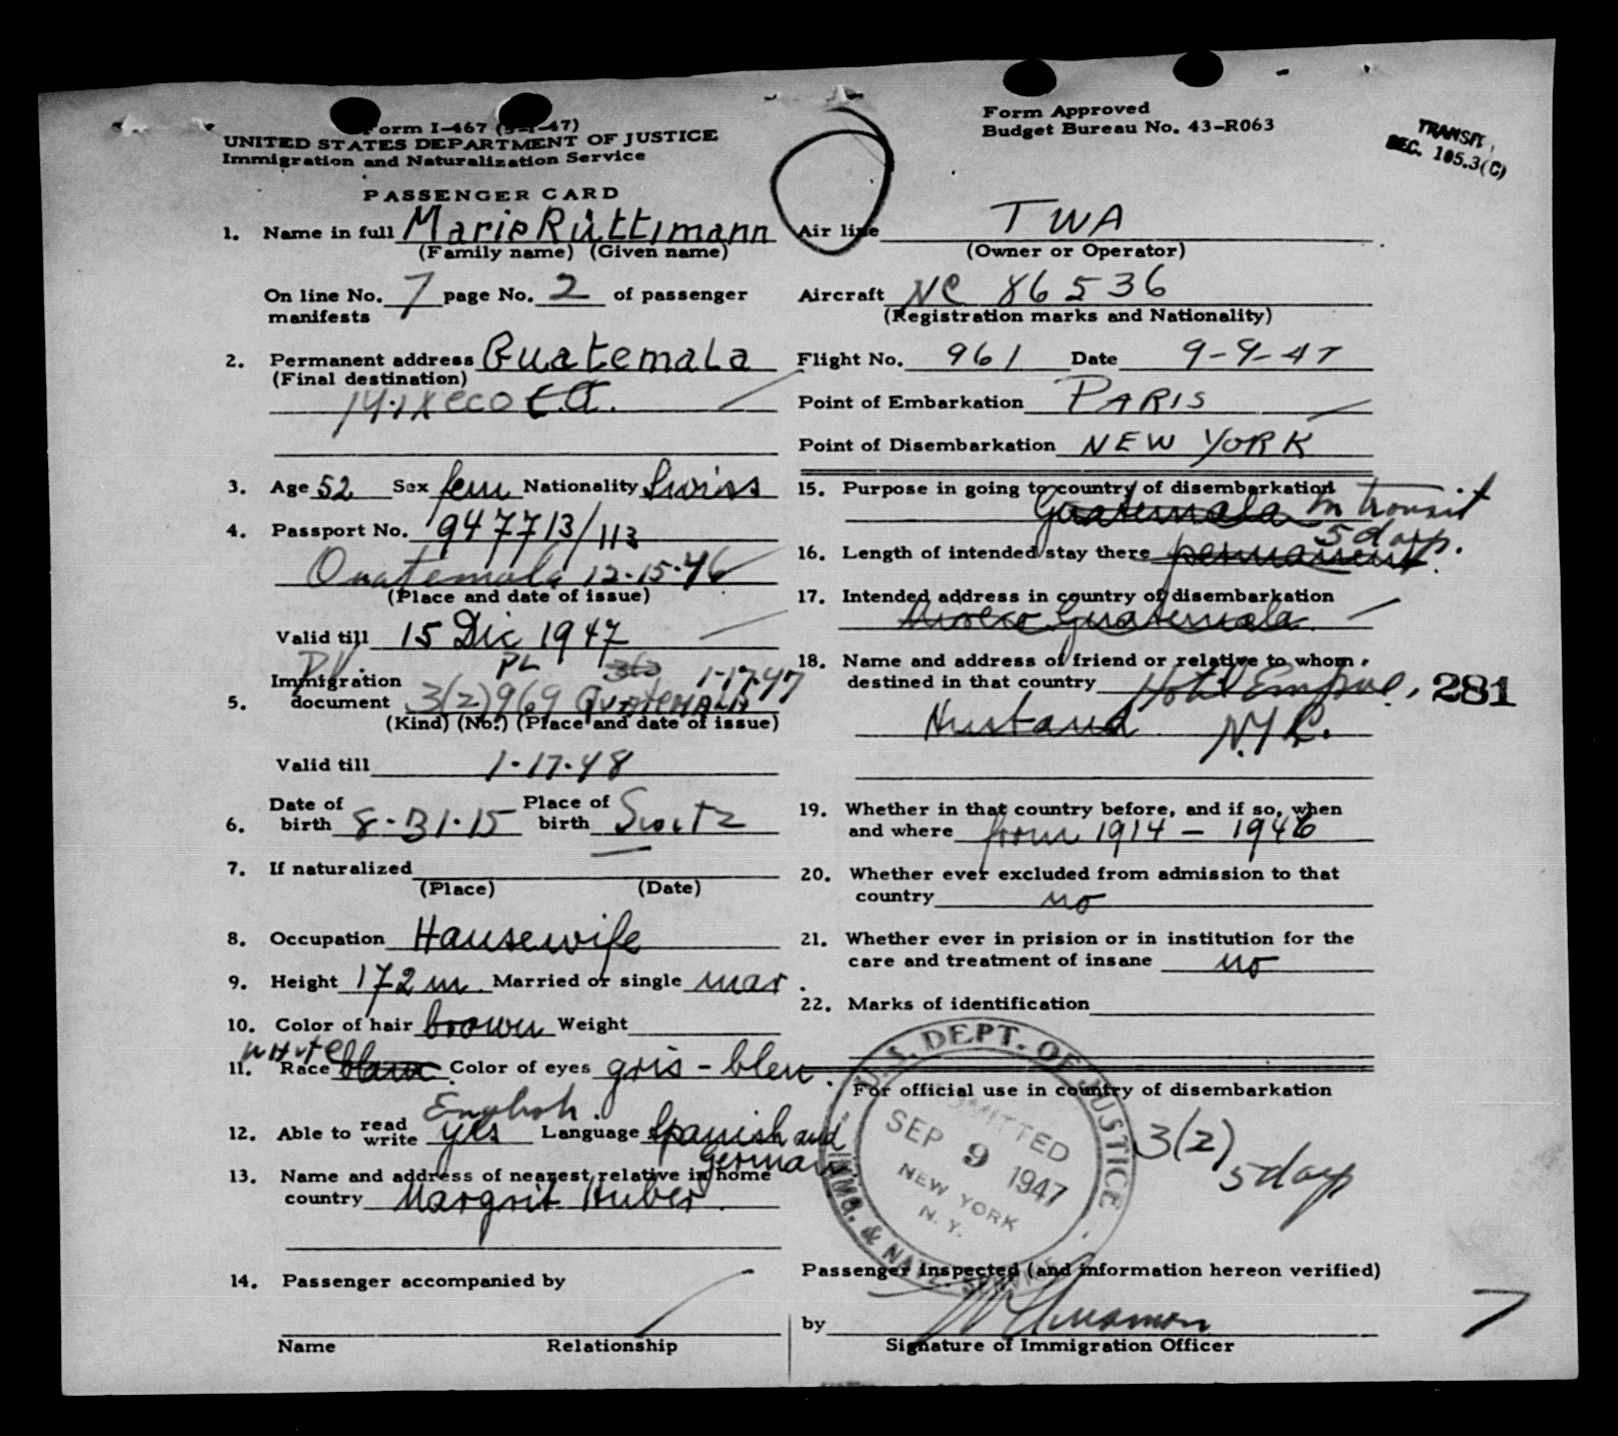 Form I-467 (5-1-47)
UNITED STATES DEPARTMENT OF JUSTICE
Immigration and Naturalization Service
PASSENGER CARD
Form Approved
Budget Bureau No. 43-R063
TRANSIT,
SEC. 105.3(C)
1. Name in full Marie Rüttimann
(Family name) (Given name)
On line No. 7 page No. 2 of passenger
manifests
2. Permanent address Guatemala
(Final destination)
Mixeco C.A.
3. Age 52 Sex fem Nationality Swiss
4. Passport No. 947713/113
Guatemala 12-15-46
(Place and date of issue)
Valid till 15 Dic 1947
PL 1-17-47
Immigration
5. document 3(2) 969 Guatemala
(Kind) (No.) (Place and date of issue)
Valid till 1-17-48
Date of Place of
6. birth 8-31-15 birth Switz
7. If naturalized
(Place) (Date)
8. Occupation Hausewife
9. Height 172 m. Married or single mar.
10. Color of hair brown Weight
white
11. Race blanc Color of eyes gris-bleu.
English.
12. Able to read write yes Language Spanish and
German
13. Name and address of nearest relative in home
country Margrit Huber.
14. Passenger accompanied by
Name Relationship
Air line TWA
(Owner or Operator)
Aircraft NC 86536
(Registration marks and Nationality)
Flight No. 961 Date 9-9-47
Point of Embarkation PARIS
Point of Disembarkation NEW YORK
15. Purpose in going to country of disembarkation
Guatemala In transit
5 days.
16. Length of intended stay there permanent.
17. Intended address in country of disembarkation
Mixeco Guatemala.
18. Name and address of friend or relative to whom
destined in that country Hotel Empire,
281
Husband N.Y.C.
19. Whether in that country before, and if so, when
and where from 1914 - 1946
20. Whether ever excluded from admission to that
country no
21. Whether ever in prision or in institution for the
care and treatment of insane no
22. Marks of identification
For official use in country of disembarkation
U.S. DEPT. OF JUSTICE
ADMITTED
SEP 9 1947
NEW YORK
N. Y.
IMMG. & NATZ. SERVICE
3(2)
5 days
Passenger inspected (and information hereon verified)
by
Signature of Immigration Officer
7